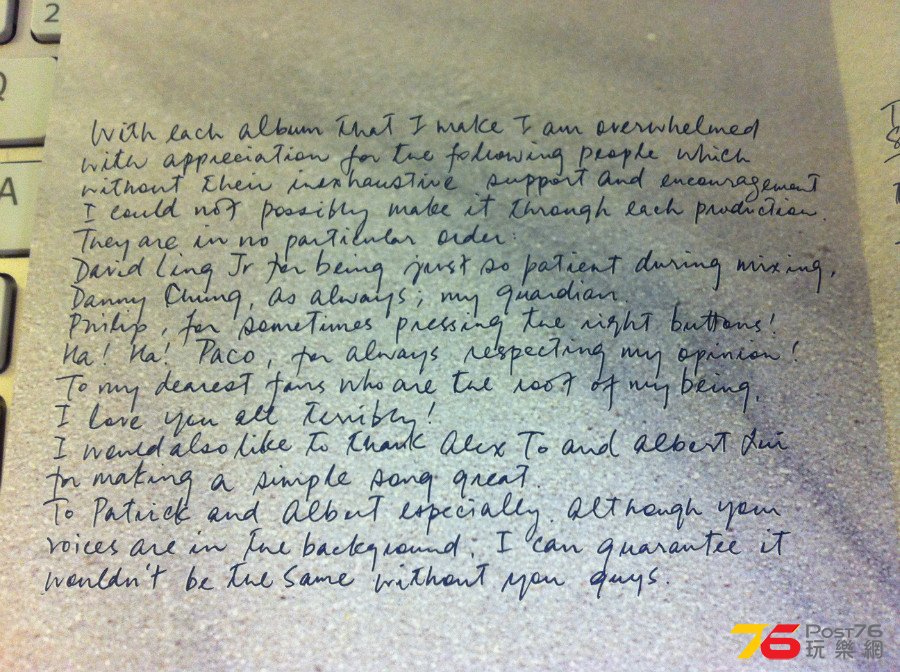 With each album that I make I am overwhelmed
with appreciation for the following people which
without their inexhaustive support and encouragement
I could not possibly make it through each production.
They are in no particular order:
David Ling Jr for being just so patient during mixing.
Danny Chung, as always; my guardian.
Philip, for sometimes pressing the right buttons!
Ha! Ha! Paco, for always respecting my opinion!
To my dearest fans who are the root of my being,
I love you all terribly!
I would also like to thank Alex To and Albert Lui
for making a simple song great.
To Patrick and Albert especially. Although your
voices are in the background, I can guarantee it
wouldn't be the same without you guys.
2
Q
A
76 Post76
玩樂網